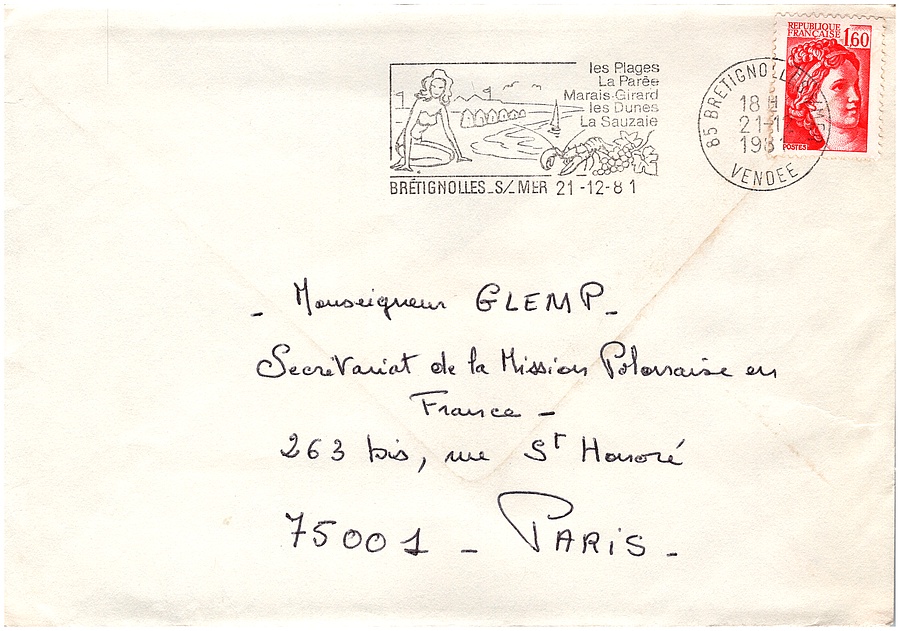 les Plages
La Parée
Marais-Girard
les Dunes
La Sauzaie
BRÉTIGNOLLES_S/_MER 21-12-81
REPUBLIQUE
FRANÇAISE 1,60
POSTES
85 BRETIGNOLLES
18 H
21-1
1981
VENDEE
- Monseigneur GLEMP -
Secrétariat de la Mission Polonaise en
France -
263 bis, rue St Honoré
75001 - PARIS -